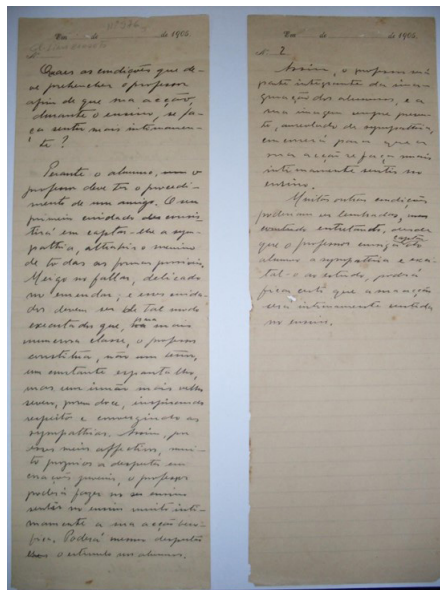 de 1906.
Quaes as condições que de-
ve prehencher o professor
afim de que sua acção,
durante o ensino, se fa-
ça sentir mais intimamen-
te?
Perante o alumno, o
professor deve ter o procedi-
mento de um amigo. O seu
primeiro cuidado consis-
tirá em captar-lhe a sym-
pathia, attrahir o menino
de todas as formas possiveis.
Meigo no fallar, delicado
no emendar; e esses cuida-
dos devem ser de tal modo
executados que, na mais
numerosa classe, o professor
constitua, não um
um constante espantalho,
mas um irmão mais velho
severo, porem doce, inspirando
respeito e convergindo as
sympathias. Assim, por
esses meios affectivos, mui-
to proprios a despertar em
corações juvenis, o professor
poderá fazer no seu ensino
sentir no ensino muito inti-
mamente a sua acção bene-
fica. Poderá mesmo despertar
o estimulo em alumnos.
de 1906.
2
Assim, o professor será
parte integrante da ima-
ginação dos alumnos, e a
sua imagem sempre presen-
te, aureolada de sympathia,
concorrerá para que a
sua acção se faça mais
intimamente sentir no
ensino.
Muitas outras condições
poderiam ser lembradas,
entretanto, desde
que o professor consiga do
alumno a sympathia e
o estudo, poderá
ficar certo que a sua acção
será intimamente sentida
no ensino.